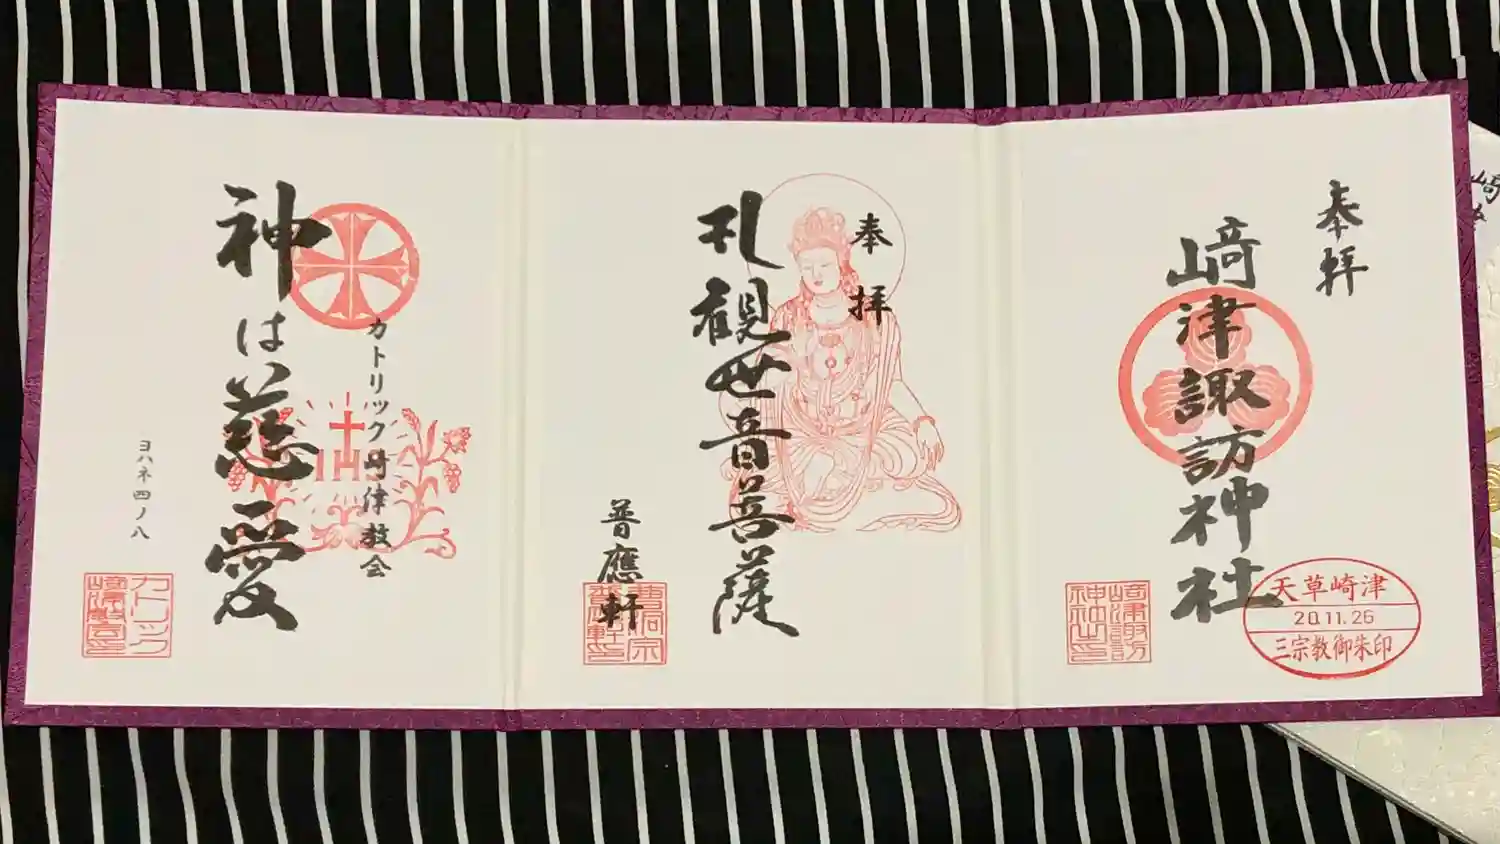 奉拝
崎津諏訪神社
天草崎津
20.11.26
三宗教御朱印
崎津諏訪
神社之印
奉拝
礼観世音菩薩
普應軒
曹洞宗
普應軒印
カトリック崎津教会
神は慈愛
ヨハネ四ノ八
カトリック